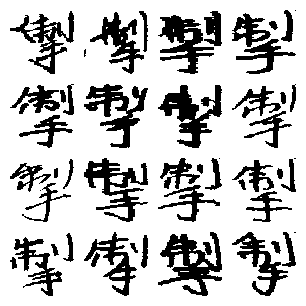 掣掣掣掣
掣掣掣掣
掣掣掣掣
掣掣掣掣